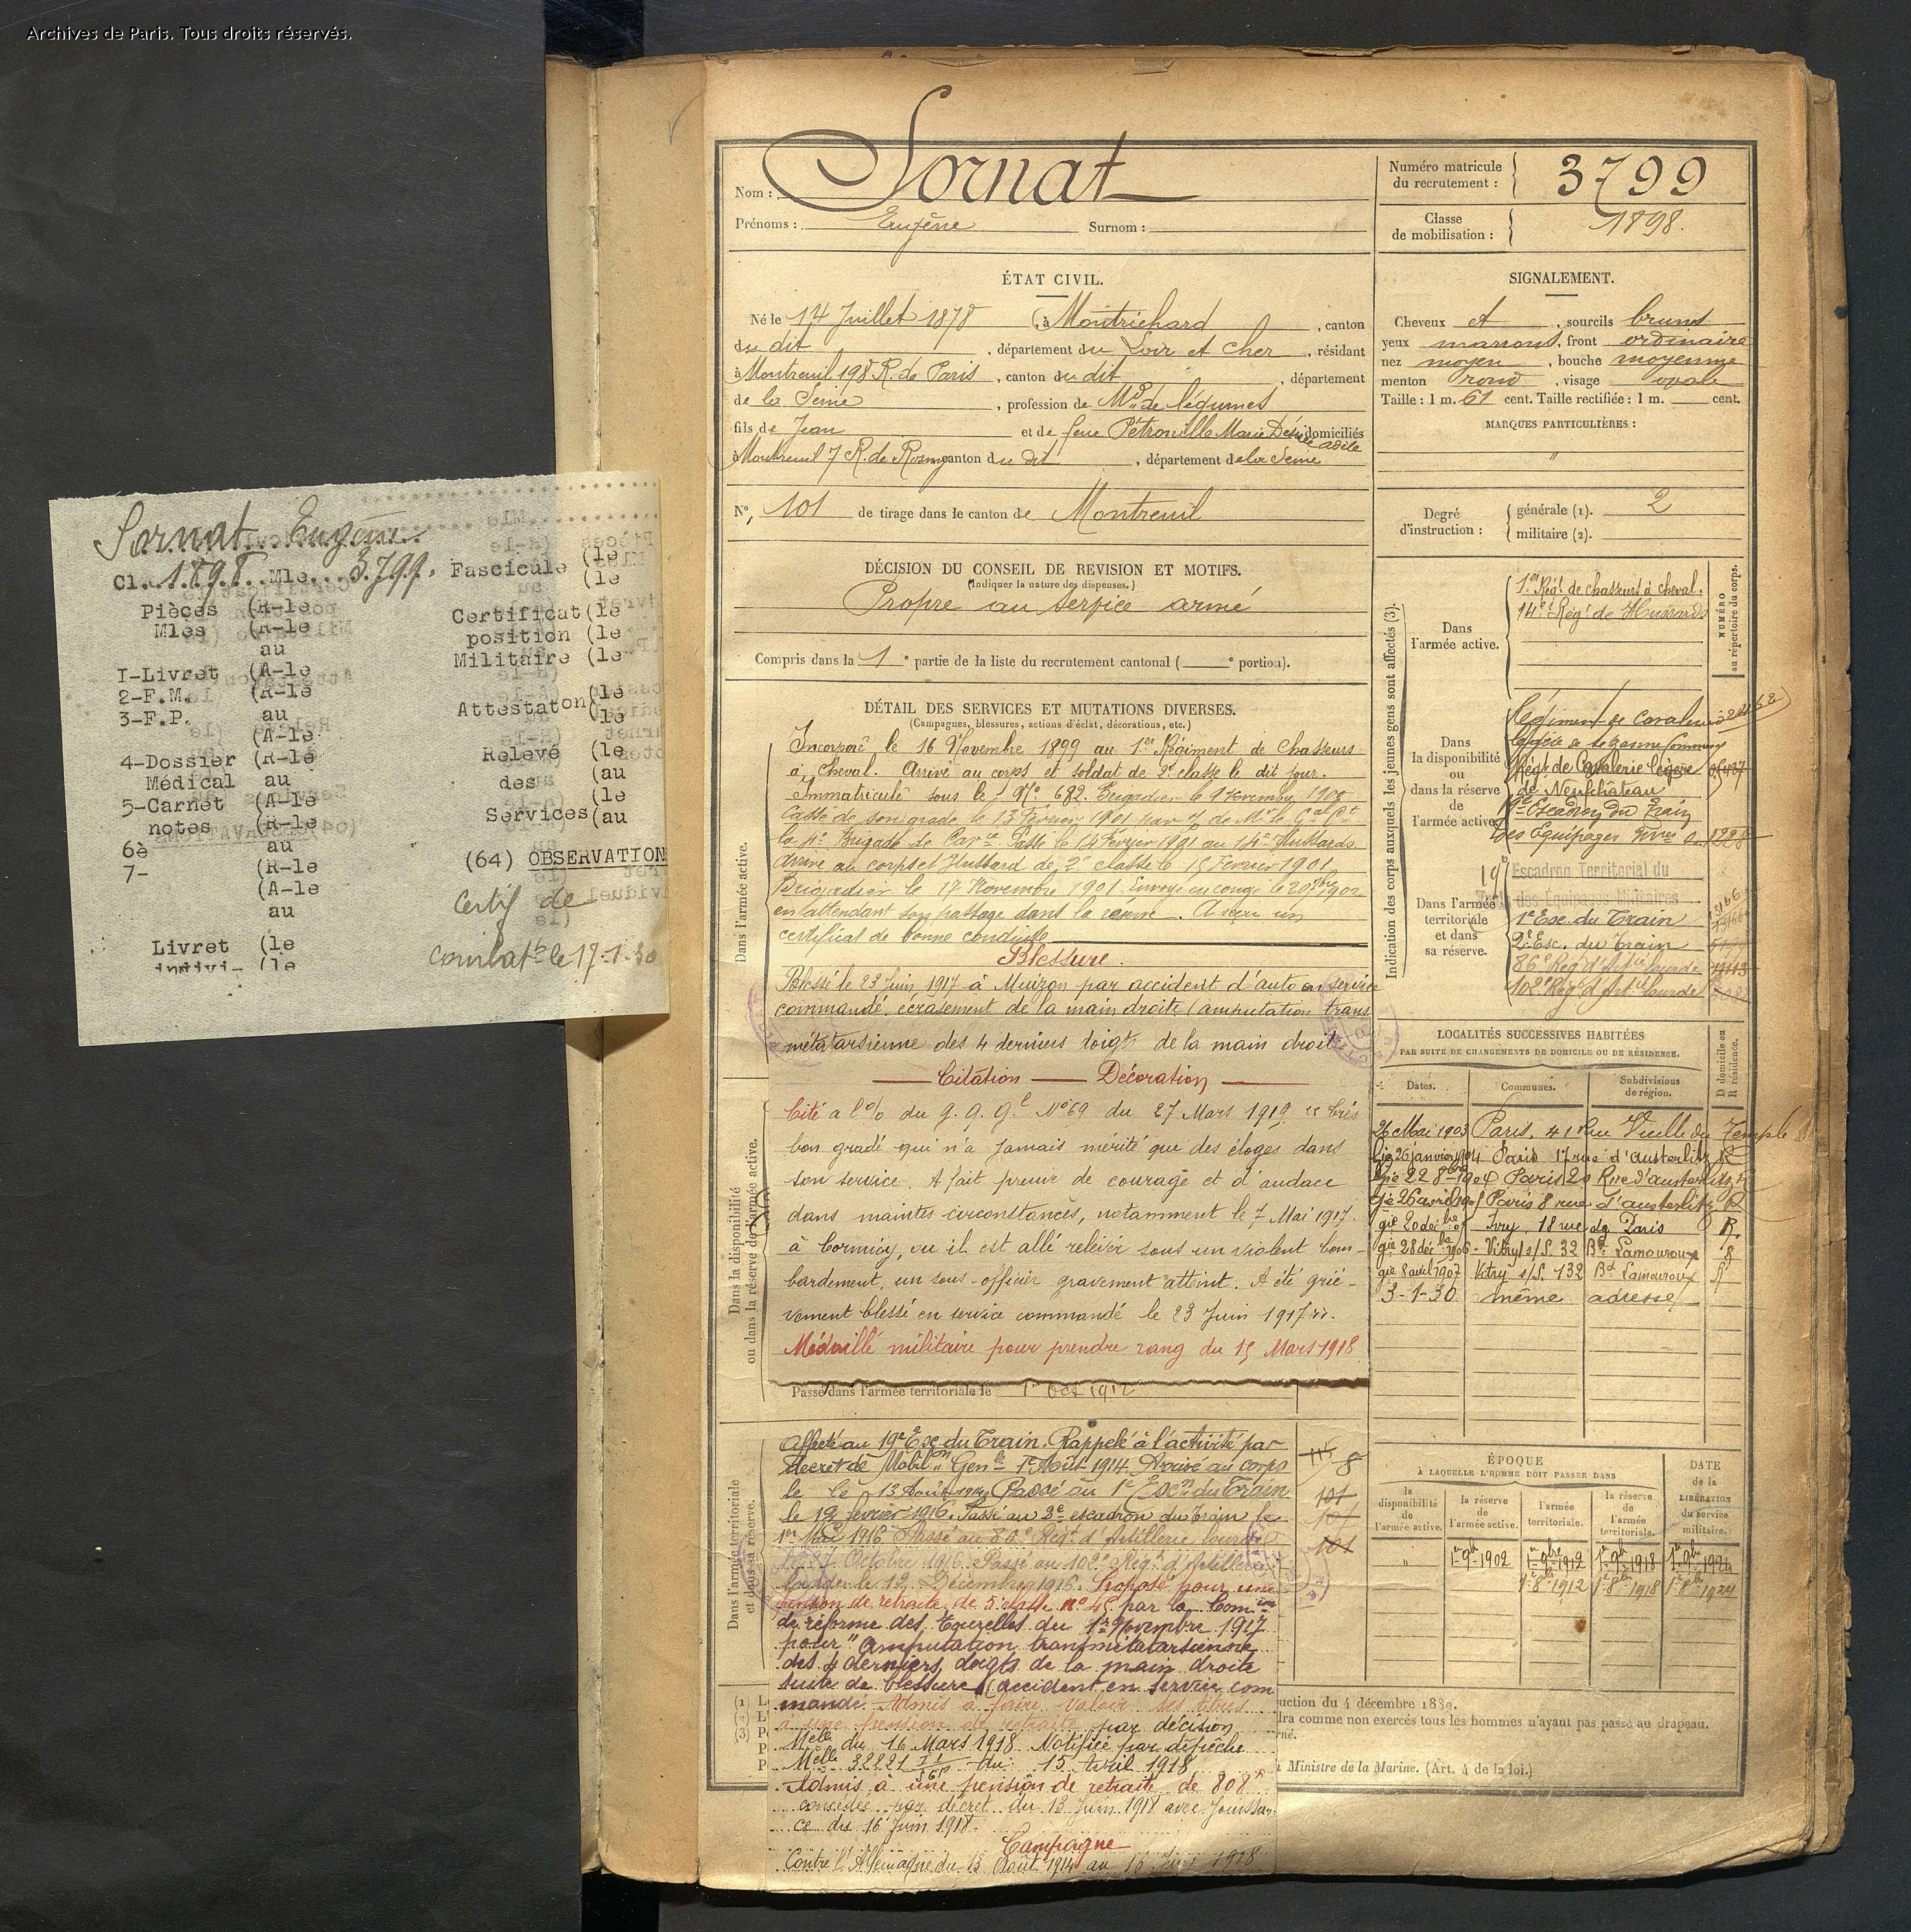 Archives de Paris. Tous droits réservés.
Sornat Eugène
Cl. 1898. Mle. 3799. Fascicule (le
(le
Pièces (R-le
Mles (R-le
au
Certificat (le
position (le
Militaire (le
1-Livret (A-le
2-F.M. (R-le
3-F.P. au
(A-le
Attestaton (le
(le
4-Dossier (R-le
Médical au
5-Carnet (A-le
notes (R-le
Relevé (le
des (au
Services (le
(au
6è au
7- (R-le
(A-le
au
(64) OBSERVATION
Certif de
combatt le 17-1-30
Livret (le
indivi- (le
Nom : Sornat
Prénoms : Eugène Surnom :
Numéro matricule
du recrutement : 3799
Classe
de mobilisation : 1898.
ÉTAT CIVIL.
Né le 14 Juillet 1878, à Montrichard, canton
du dit, département du Loir et Cher, résidant
à Montreuil 198 R. de Paris, canton du dit, département
de la Seine, profession de Md de légumes
fils de Jean et de feue Pétronille Marie Désirée Adèle domiciliés
à Montreuil 7 R. de Rosny canton du dit, département de la Seine
N° 101 de tirage dans le canton de Montreuil
SIGNALEMENT.
Cheveux et, sourcils bruns
yeux marrons, front ordinaire
nez moyen, bouche moyenne
menton rond, visage ovale
Taille : 1 m. 61 cent. Taille rectifiée : 1 m. cent.
MARQUES PARTICULIÈRES :
"
Degré
d'instruction :
générale (1). 2
militaire (2).
DÉCISION DU CONSEIL DE REVISION ET MOTIFS.
(Indiquer la nature des dispenses.)
Propre au service armé
Compris dans la 1e partie de la liste du recrutement cantonal ( e portion).
DÉTAIL DES SERVICES ET MUTATIONS DIVERSES.
(Campagnes, blessures, actions d'éclat, décorations, etc.)
Dans l'armée active.
Incorporé le 16 Novembre 1899 au 1er Régiment de Chasseurs
à Cheval. Arrivé au corps et soldat de 2e classe le dit jour.
Immatriculé sous le N° 682. Brigadier le 9 Novembre 1900
Cassé de son grade le 13 Février 1901 par de Mr le Gal Ct
la 4e Brigade de Cavie Passé le 14 Février 1901 au 14e Hussards.
Arrivé au corps et Hussard de 2e classe le 15 Février 1901.
Brigadier le 17 Novembre 1901. Envoyé en congé le 20 7bre 1902
en attendant son passage dans la réserve. A reçu un
certificat de bonne conduite
Blessure.
Blessé le 23 Juin 1917 à Muizon par accident d'auto en service
commandé, écrasement de la main droite (amputation trans
métatarsienne des 4 derniers doigts de la main droite
Citation — Décoration
Dans la disponibilité
ou dans la réserve de l'armée active.
Cité a l'O/ du G. Q. Gl N° 69 du 27 Mars 1919 "très
bon gradé qui n'a jamais mérité que des éloges dans
son service. A fait preuve de courage et d'audace
dans maintes circonstances, notamment le 7 Mai 1917.
à Cormicy, ou il est allé relever sous un violent bom-
bardement, un sous-officier gravement atteint. A été griè-
vement blessé en service commandé le 23 Juin 1917".
Médaillé militaire pour prendre rang du 15 Mars 1918
Passé dans l'armée territoriale le 1er Oct 1912
Dans l'armée territoriale
et dans sa réserve.
Affecté au 19e Esc. du Train. Rappelé à l'activité par
décret de Mobilon Génle 1er Août 1914. Arrivé au corps
le 13 Août 1914 Passé au 1er Escon du Train
le 12 février 1916. Passé au 2e escadron du train le
1er Mai 1916 Passé au 86e Régt d'Artillerie lourde
Octobre 1916. Passé au 102e Régt d'Artillerie
lourde le 12 Décembre 1916. Proposé pour une
pension de retraite de 5e classe n° 45 par la Comon
de réforme des Tourelles du 1er Novembre 1917
pour "Amputation transmétatarsienne
des 4 derniers doigts de la main droite
suite de blessure (accident en service com
mandé. Admis à faire valoir ses titres
à une pension de retraite par décision
Melle du 16 Mars 1918. Notifiée par dépêche
Melle 32221 du 15 Avril 1918
Admis à une pension de retraite de 808 f
concédée par décret du 13 Juin 1918 avec jouissan-
ce du 16 Juin 1918.
Campagne
Contre l'Allemagne du 13 Août 1914 au 16 Juin 1918
8
101
101
Indication des corps auxquels les jeunes gens sont affectés (3).
NUMÉRO
au répertoire du corps.
Dans
l'armée active.
1er Régt de chasseurs à cheval.
14e Régt de Hussards
Dans
la disponibilité
ou
dans la réserve
de
l'armée active.
Régiment de Cavalerie
Régt de Cavalerie légère
de Neufchâteau
Escadron du Train
des Équipages
Dans l'armée
territoriale
et dans
sa réserve.
19e Escadron Territorial du
Train des Équipages Militaires
1er Esc. du Train
2e Esc. du Train
86e Régt d'Artie lourde
102e Régt d'Artie lourde
LOCALITÉS SUCCESSIVES HABITÉES
PAR SUITE DE CHANGEMENTS DE DOMICILE OU DE RÉSIDENCE.
Dates. Communes. Subdivisions
de région.
D domicile ou
R résidence.
26 Mai 1903 Paris. 41 Rue Vieille du Temple
26 janvier 1904 Paris 17 rue d'Austerlitz R
22 8bre 1904 Paris 20 Rue d'austerlitz R
26 avril 1905 Paris 8 rue d'austerlitz R
20 décbre Ivry, 18 rue de Paris R.
28 décbre 1906 - Vitry s/S. 32 Bd Lamouroux R
8 avril 1907 Vitry s/S. 132 Bd Lamouroux R
3-1-30 même adresse
ÉPOQUE
À LAQUELLE L'HOMME DOIT PASSER DANS
la
disponibilité
de
l'armée active.
la réserve
de
l'armée active.
l'armée
territoriale.
la réserve
de
l'armée
territoriale.
DATE
de la
LIBÉRATION
du service
militaire.
" 1er 9b 1902 1er 9bre 1912 1er 9b 1918 1er 9b 1924
1er 8b 1912 1er 8b 1918 1er 8b 1924
(1)
(2)
(3)
uction du 4 décembre 1889.
dra comme non exercés tous les hommes n'ayant pas passé au drapeau.
rné.
Ministre de la Marine. (Art. 4 de la loi.)